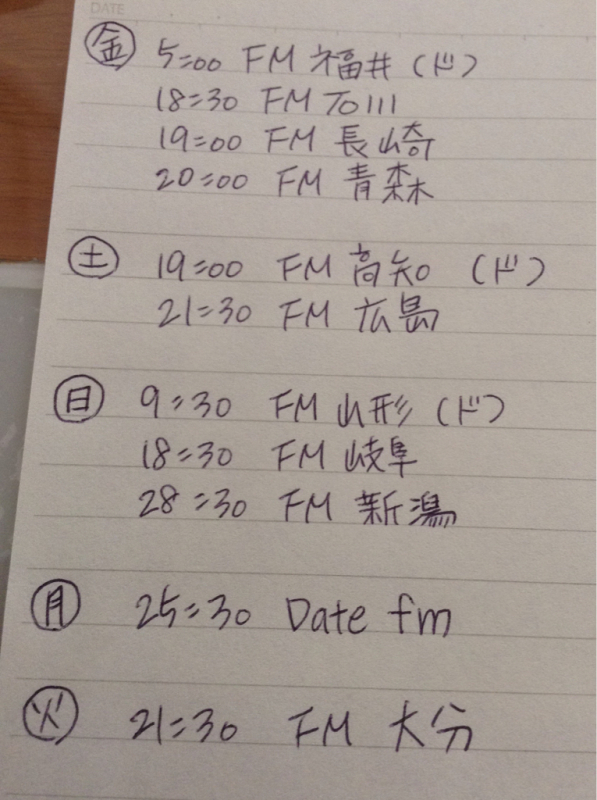 DATE
金 5:00 FM 福井 (ド)
18:30 FM TOIII
19:00 FM 長崎
20:00 FM 青森
土 19:00 FM 高知 (ド)
21:30 FM 広島
日 9:30 FM 山形 (ド)
18:30 FM 岐阜
28:30 FM 新潟
月 25:30 Date fm
火 21:30 FM 大分